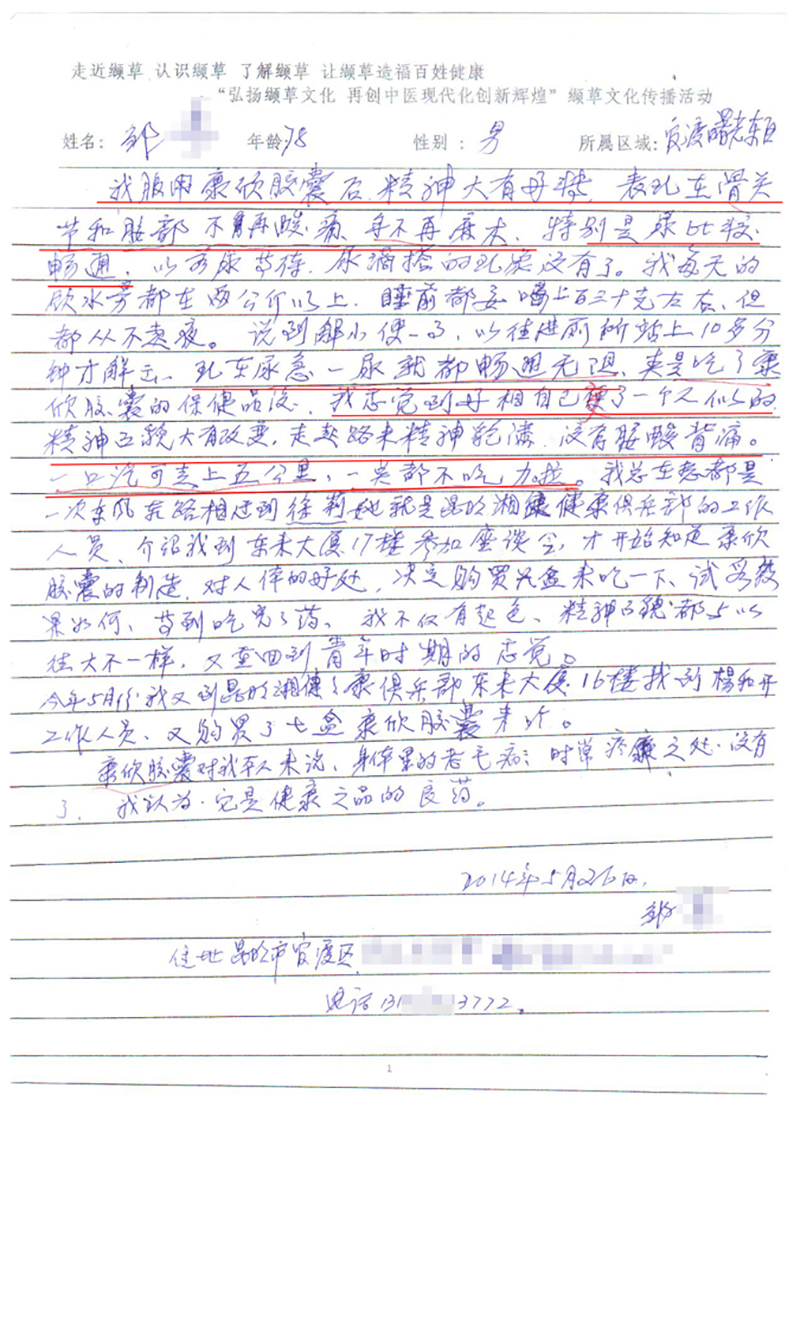 走近缬草 认识缬草 了解缬草 让缬草造福百姓健康
“弘扬缬草文化 再创中医现代化创新辉煌”缬草文化传播活动
姓名：邹 年龄78 性别：男 所属区域：官渡曙光东区
我服用康欣胶囊后，精神大有好转，表现在骨关
节和脑部不再酸痛，手不再麻木，特别是尿比较
畅通，以前尿等待，尿滴搭的现象没有了。我每天的
饮水量都在两公斤以上，睡前都要喝上百三十克左右，但
都从不起夜。说到解小便一事，以往进厕所站上10多分
钟才解出、现在尿急一尿就都畅通无阻，真是吃了康
欣胶囊的保健品后，我感觉到好相自己变了一个人似的
精神面貌大有改变，走起路来精神饱满，没有腰酸背痛。
一口气可走上五公里，一点都不吃力拉。我总在想都是
一次东风东路相遇到徐莉她就是昆明湘健健康俱乐部的工作
人员、介绍我到东来大厦17楼参加座谈会，才开始知道康欣
胶囊的制造，对人体的好处，决定购买六盒来吃一下、试看效
果如何、等到吃完了药、我不仅有起色、精神面貌都与以
往大不一样，又重回到青年时期的感觉。
今年5月份我又到昆明湘健健康俱乐部东来大厦16楼找到杨和开
工作人员、又购买了七盒康欣胶囊来吃。
康欣胶囊对我本人来说，身体里的老毛病；时常疼痛之处，没有
了，我认为，它是健康之品的良药。
2014年5月26日，
邹
住地昆明市官渡区
电话131 3772。
1